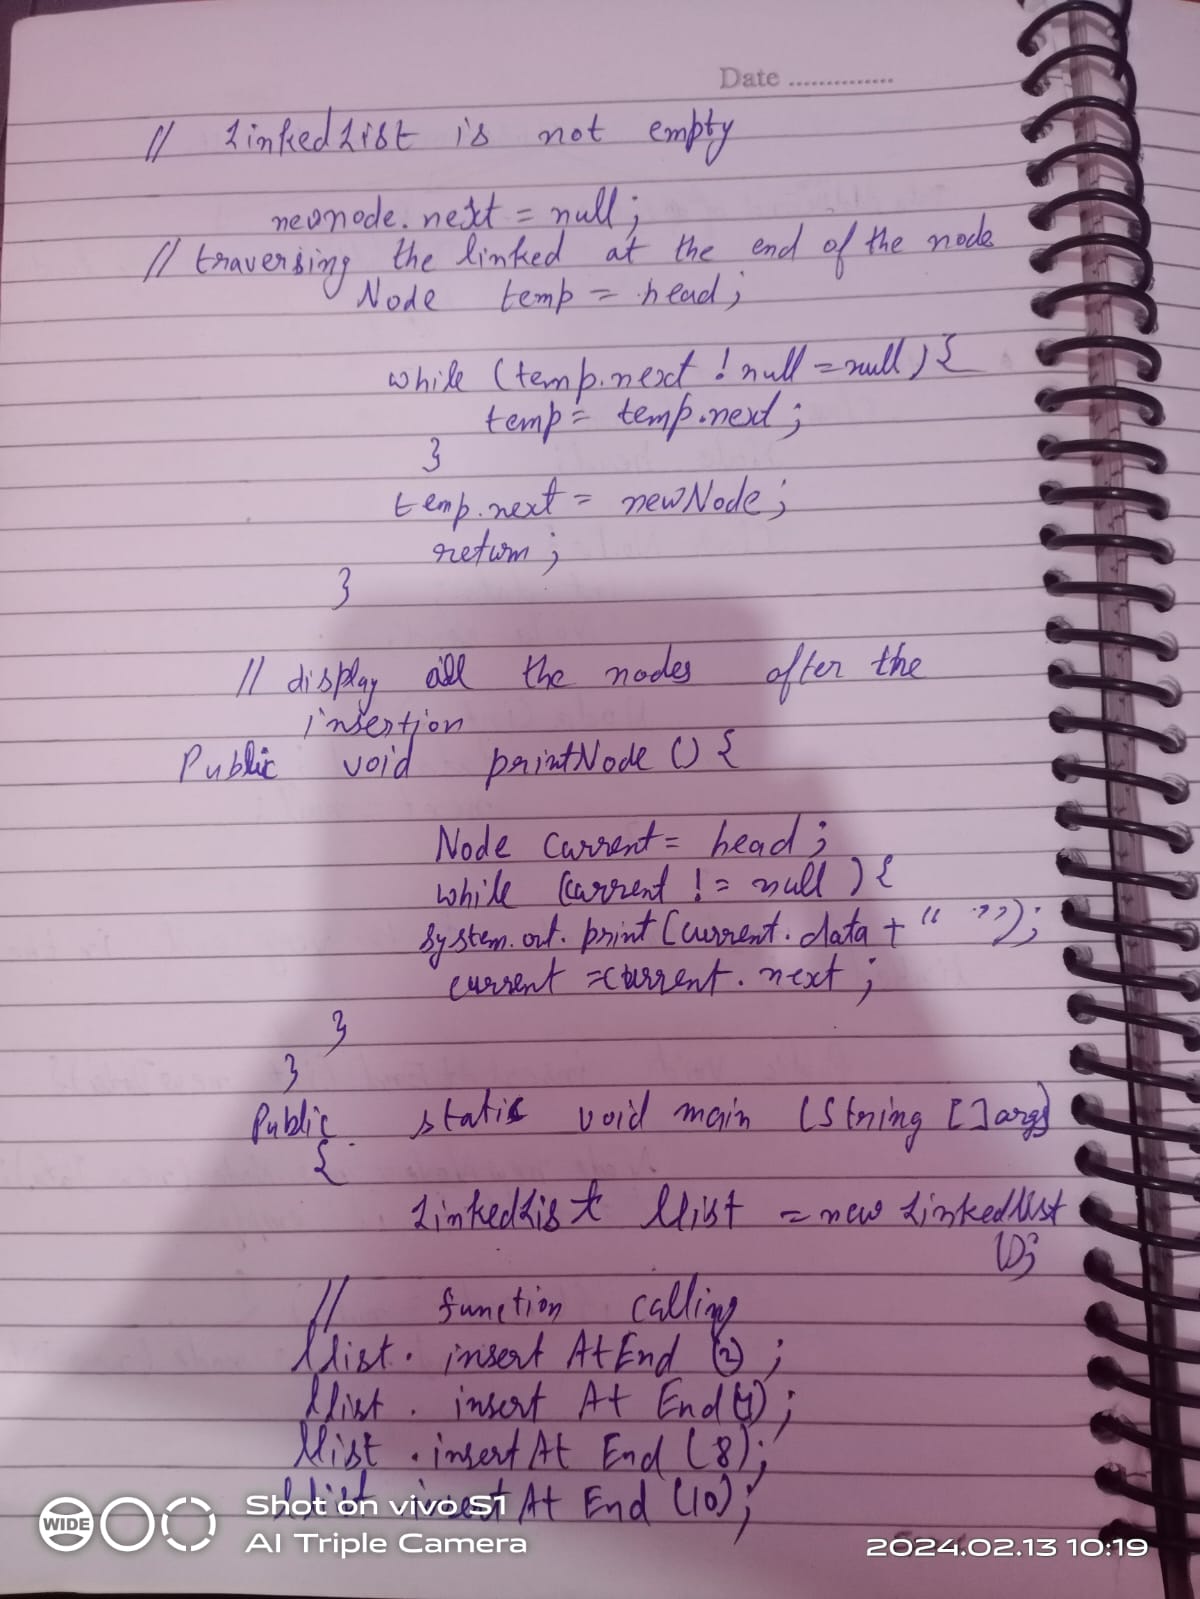 Date ..............
// LinkedList is not empty
newnode.next = null;
// traversing the linked at the end of the node
Node temp = head;
while (temp.next ! null = null) {
temp = temp.next;
}
temp.next = newNode;
return;
}
// display all the nodes after the
insertion
Public void printNode () {
Node current = head;
while (current != null) {
system.out.print(current.data + " ");
current = current.next;
}
}
Public static void main (String []args)
{
LinkedList llist = new Linkedlist
();
// function calling
llist. insert AtEnd (2);
llist. insert At End(4);
llist. insert At End (8);
llist insert At End (10);
WIDE
Shot on vivo S1
AI Triple Camera
2024.02.13 10:19